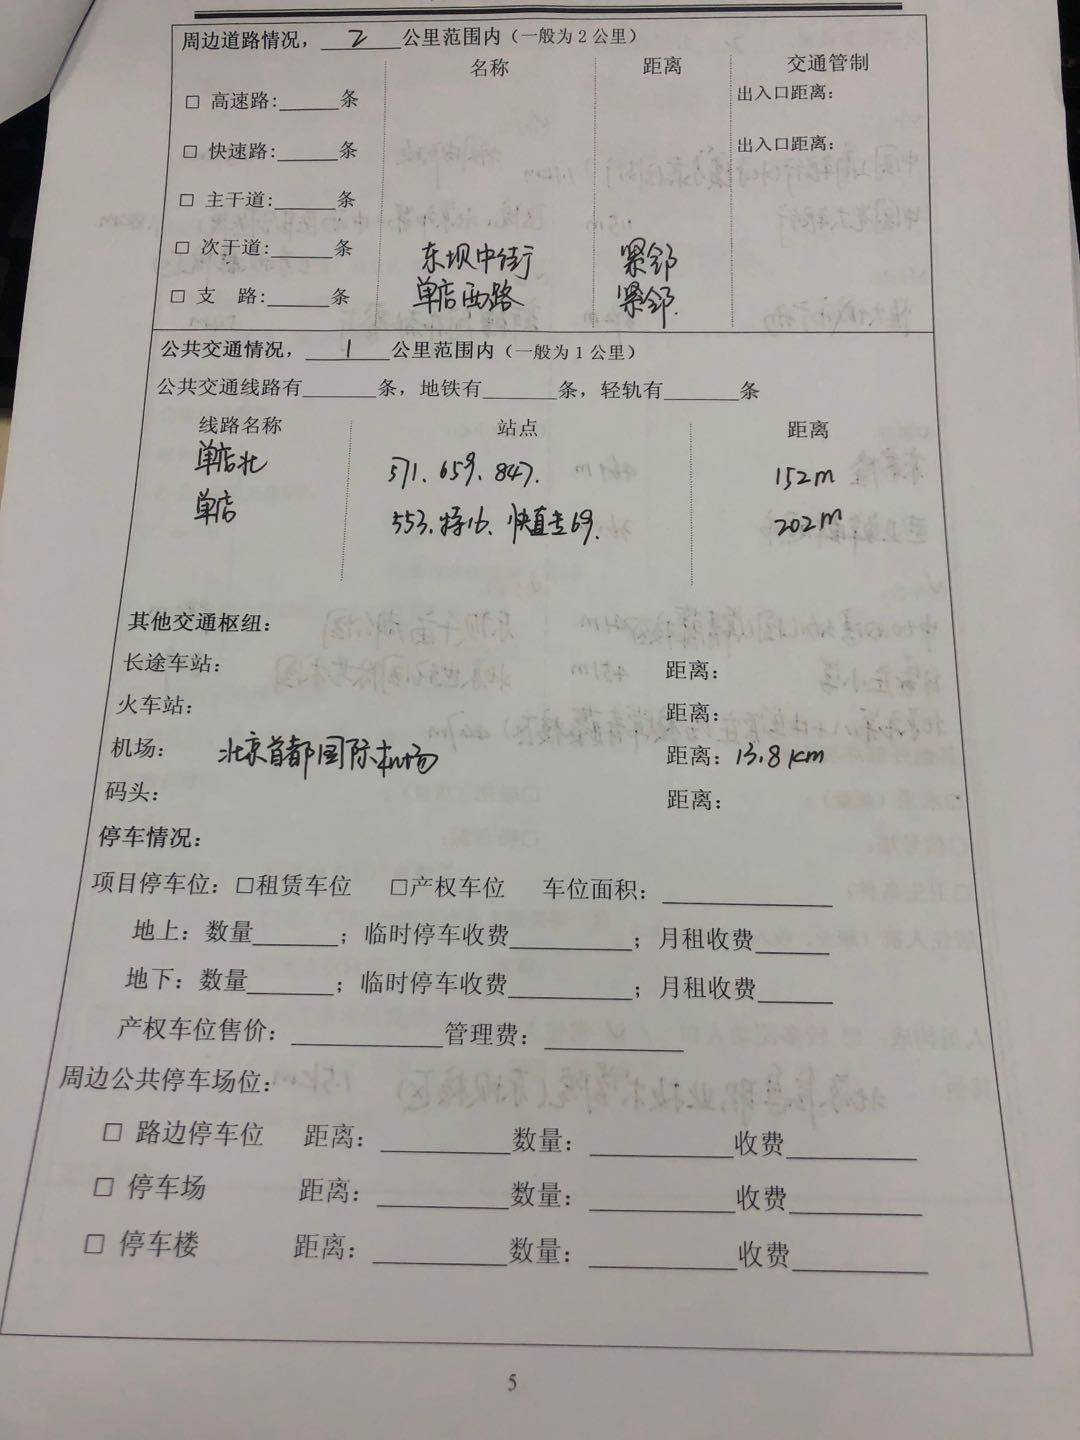 周边道路情况，2公里范围内（一般为2公里）
名称 距离 交通管制
□ 高速路:______条 出入口距离:
□ 快速路:______条 出入口距离:
□ 主干道:______条
□ 次干道:______条 东坝中街 紧邻
□ 支 路:______条 单店西路 紧邻.
公共交通情况，1公里范围内（一般为1公里）
公共交通线路有______条，地铁有______条，轻轨有______条
线路名称 站点 距离
单店北 571、659、847. 152m
单店 553.特16、快直专69. 202m.
其他交通枢纽：
长途车站： 距离：
火车站： 距离：
机场： 北京首都国际机场 距离：13.8km
码头： 距离：
停车情况：
项目停车位：□租赁车位 □产权车位 车位面积：______
地上：数量______；临时停车收费______；月租收费______
地下：数量______；临时停车收费______；月租收费______
产权车位售价：______管理费：______
周边公共停车场位：
□ 路边停车位 距离：______数量：______收费______
□ 停车场 距离：______数量：______收费______
□ 停车楼 距离：______数量：______收费______
5